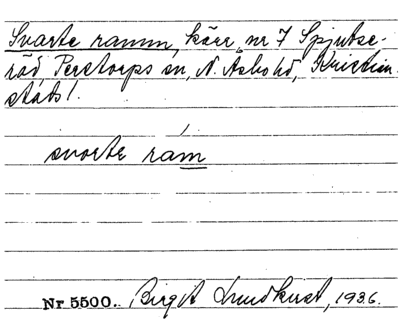 Svarte ramm, kärr, nr 7 Spjutse-
röd Perstorps sn, N. Åsbo hd, Kristian-
stads l.
svarte ram
Nr 5500. Birgit Lundkvist, 1936.